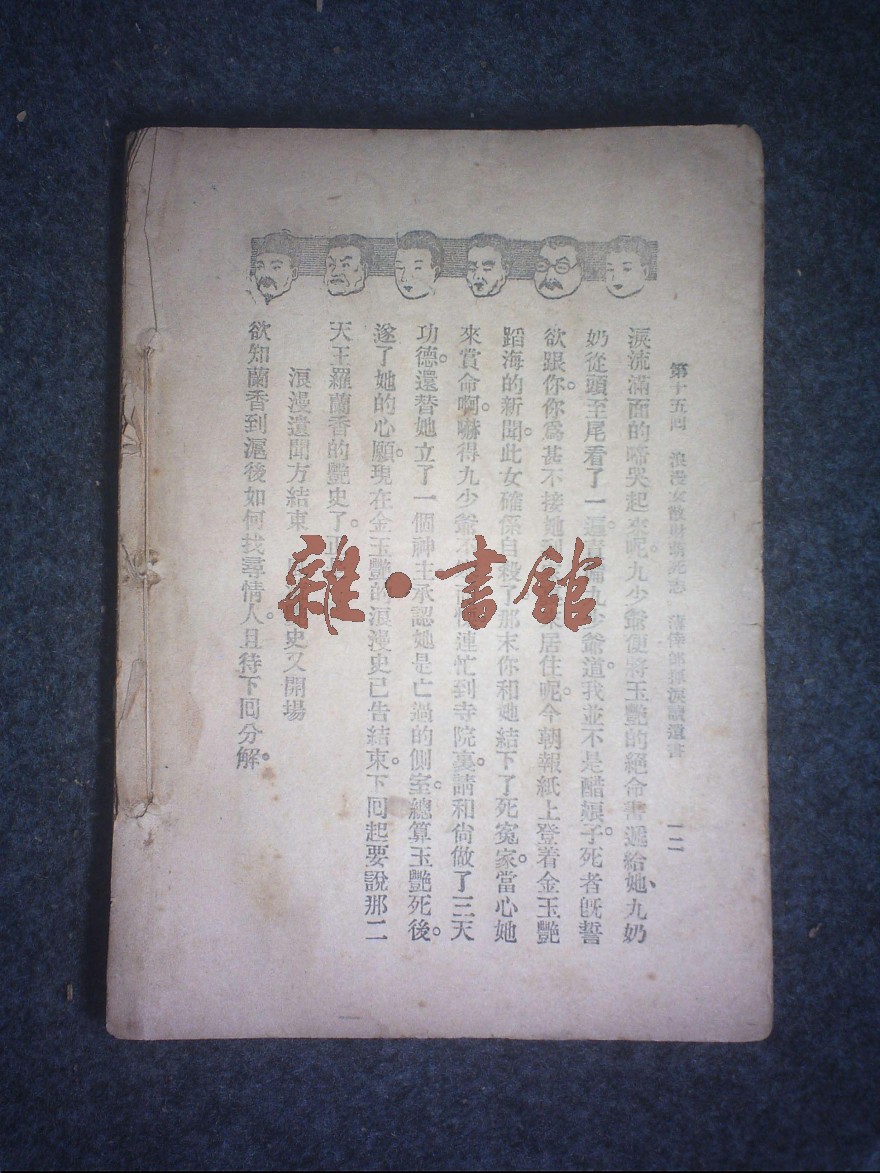 第十五回 浪漫女散財蓄死志 薄倖郎揮淚讀遺書
一二
淚流滿面的啼哭起來呢。九少爺便將玉艷的絕命書遞給她、九奶
奶從頭至尾看了一遍。九少爺道。我並不是醋娘子。死者既誓
欲跟你。你爲甚不接她居住呢。今朝報紙上登着金玉艷
蹈海的新聞。此女確係自殺了。那末你和她結下了死寃家。當心她
來賞命啊。嚇得九少爺連忙到寺院裏。請和尙做了三天
功德。還替她立了一個神主。承認她是亡過的側室。總算玉艷死後。
遂了她的心願。現在金玉艷的浪漫史已告結束。下囘起要說那二
天王羅蘭香的艷史了。正
浪漫遺聞方結束 史又開場
欲知蘭香到滬後如何找尋情人。且待下囘分解。
雜·書館